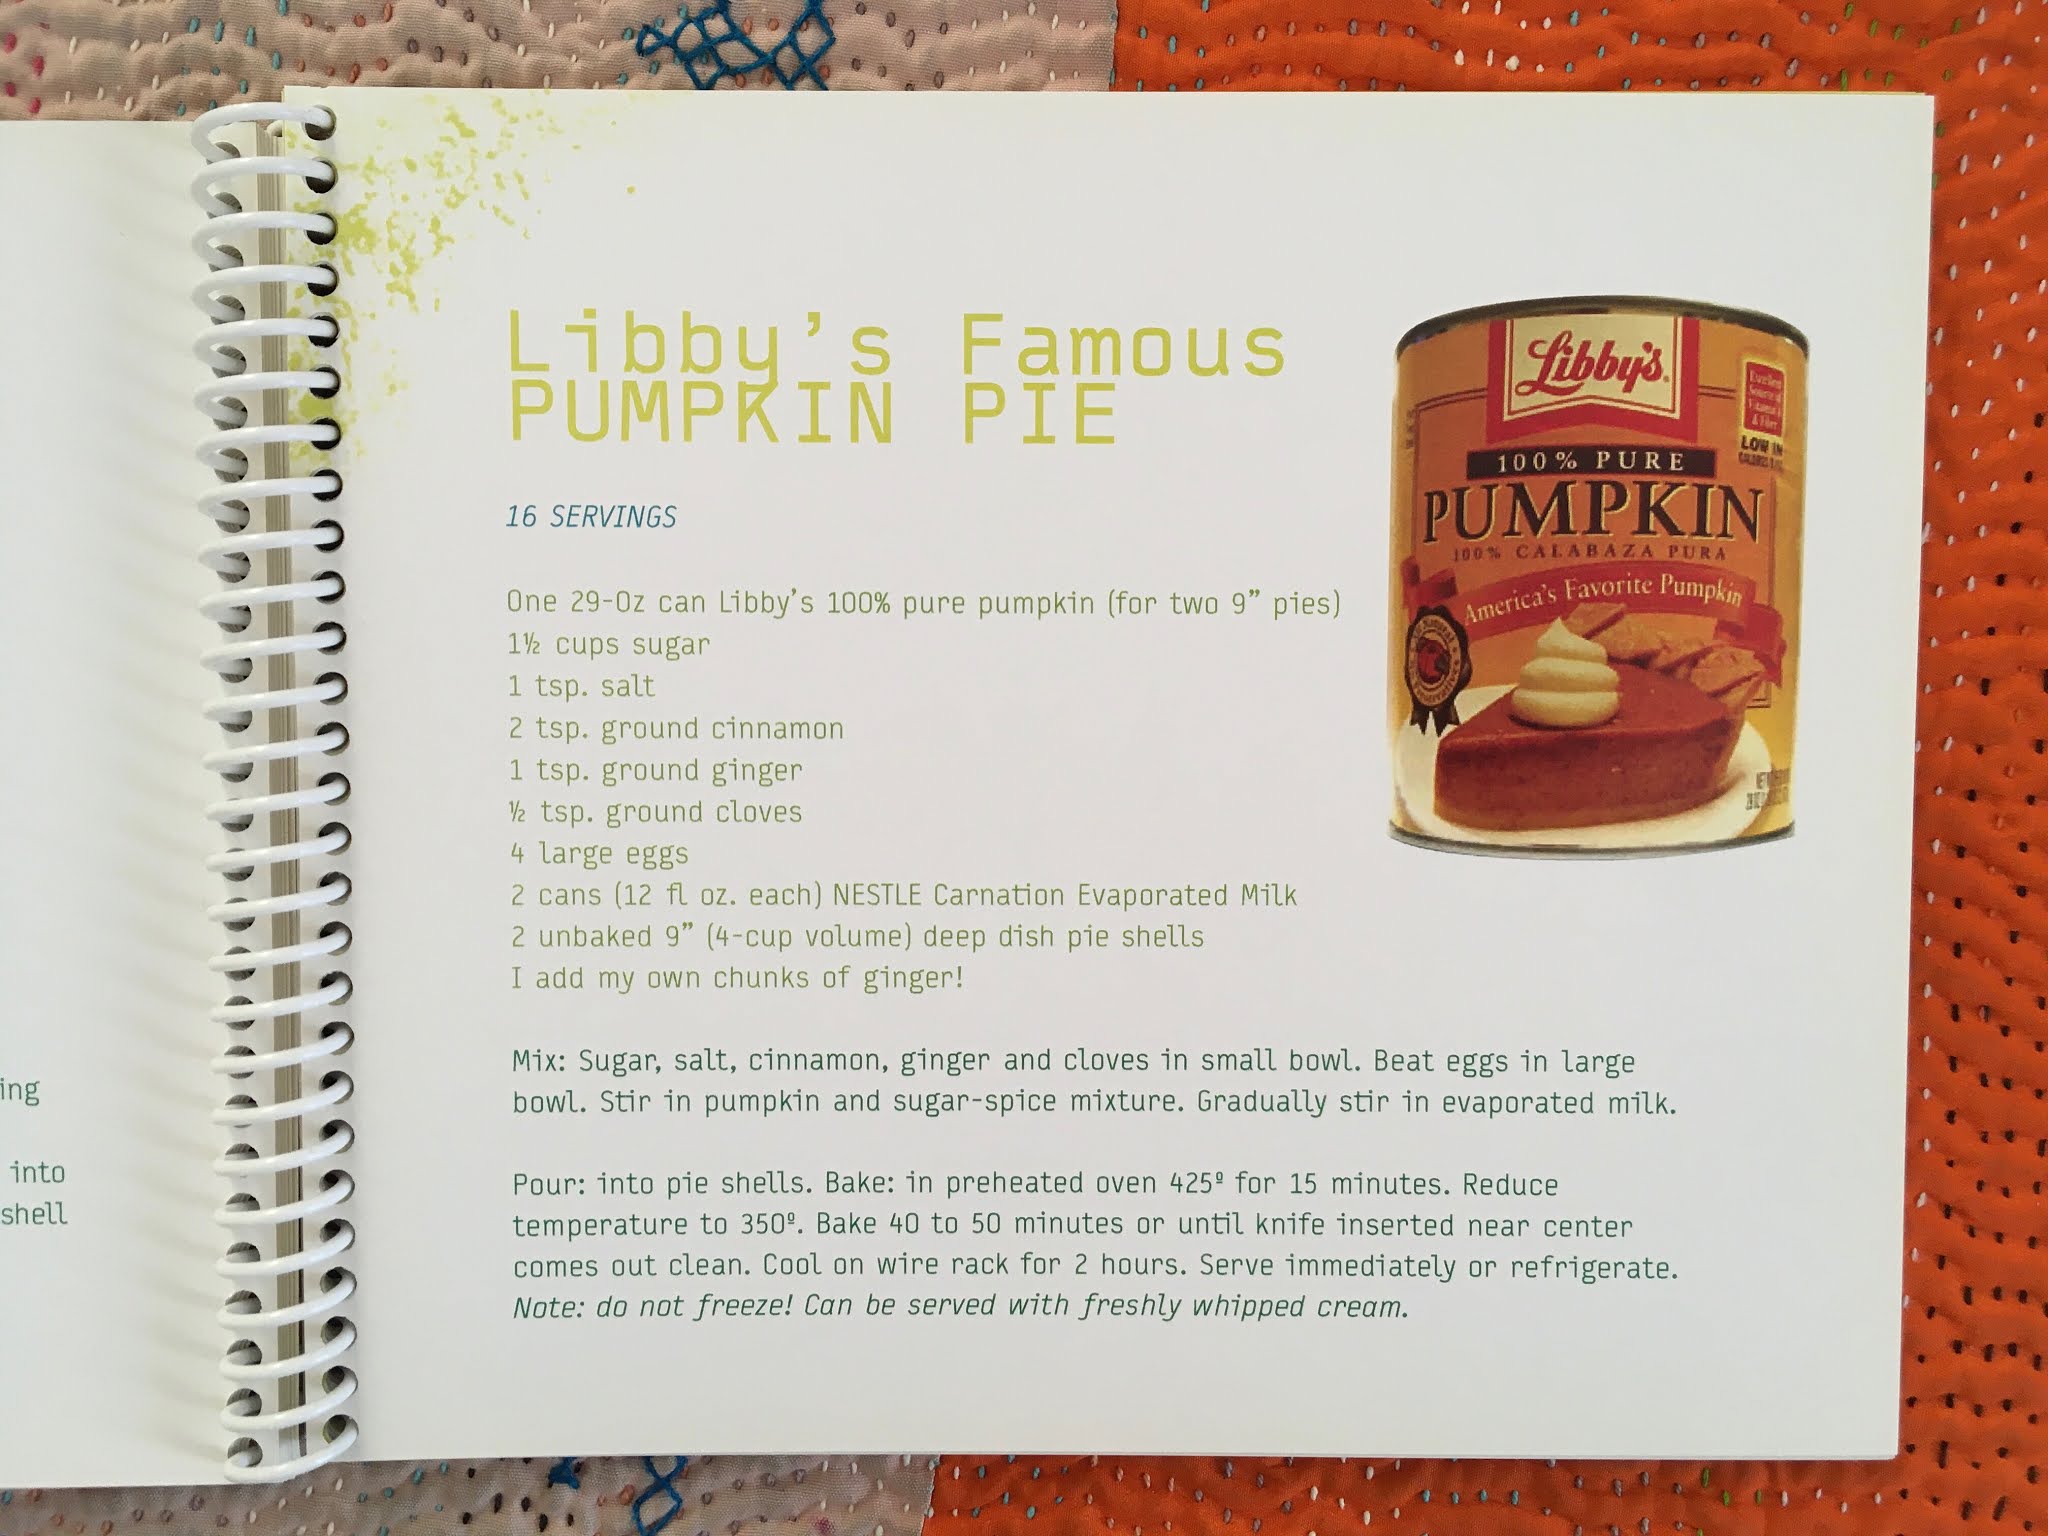 ing
into
shell
Libby's Famous
PUMPKIN PIE
16 SERVINGS
One 29-Oz can Libby's 100% pure pumpkin (for two 9" pies)
1½ cups sugar
1 tsp. salt
2 tsp. ground cinnamon
1 tsp. ground ginger
½ tsp. ground cloves
4 large eggs
2 cans (12 fl oz. each) NESTLE Carnation Evaporated Milk
2 unbaked 9" (4-cup volume) deep dish pie shells
I add my own chunks of ginger!
Mix: Sugar, salt, cinnamon, ginger and cloves in small bowl. Beat eggs in large
bowl. Stir in pumpkin and sugar-spice mixture. Gradually stir in evaporated milk.
Pour: into pie shells. Bake: in preheated oven 425º for 15 minutes. Reduce
temperature to 350º. Bake 40 to 50 minutes or until knife inserted near center
comes out clean. Cool on wire rack for 2 hours. Serve immediately or refrigerate.
Note: do not freeze! Can be served with freshly whipped cream.
Libby's
Excellent
Source of
Vitamin A
& Fiber
LOW IN
100% PURE
PUMPKIN
100% CALABAZA PURA
America's Favorite Pumpkin